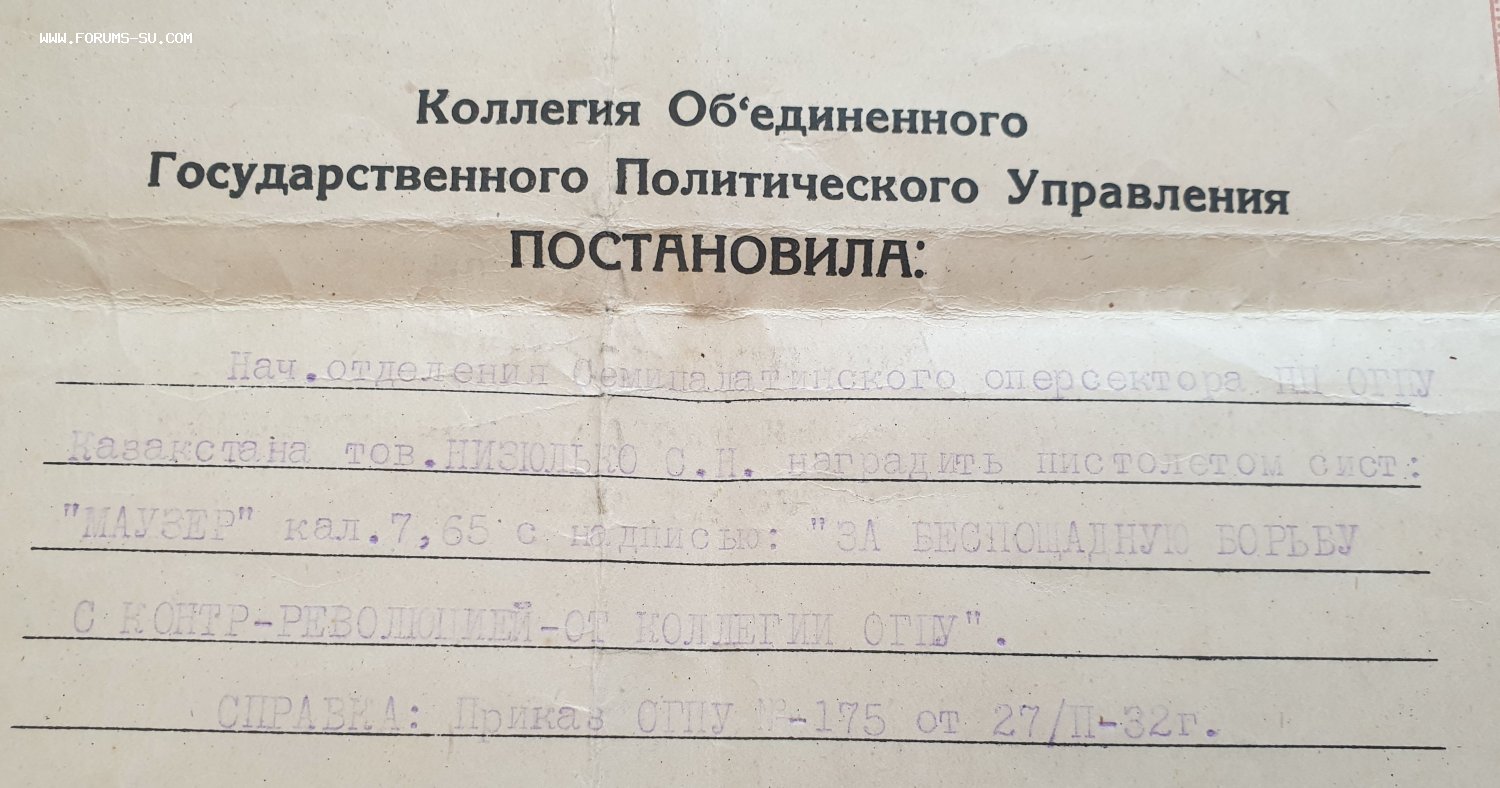 WWW.FORUMS-SU.COM
Коллегия Об‘единенного
Государственного Политического Управления
ПОСТАНОВИЛА:
Нач.отделения Семипалатинского оперсектора ПП ОГПУ
Казакстана тов.НИЗЮЛЬКО С.Н. наградить пистолетом сист:
"МАУЗЕР" кал.7,65 с надписью: "ЗА БЕСПОЩАДНУЮ БОРЬБУ
С КОНТР-РЕВОЛЮЦИЕЙ-ОТ КОЛЛЕГИИ ОГПУ".
СПРАВКА: Приказ ОГПУ №-175 от 27/П-32г.